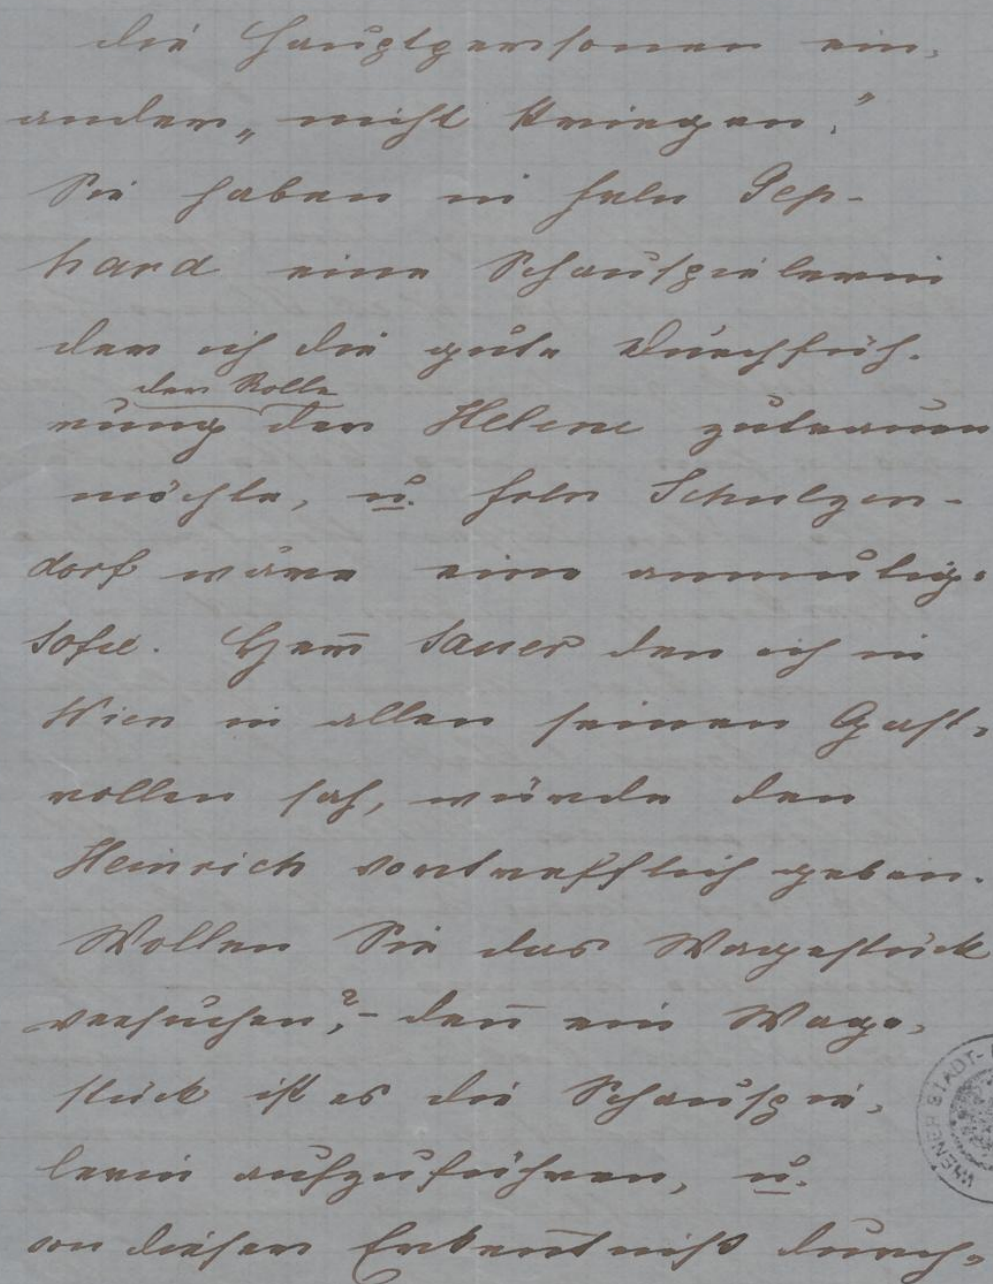 die Hauptpersonen ein-
ander „nicht kriegen."
Sie haben in Frln Gep-
hard eine Schauspielerin
der ich die gute Durchfüh-
der Rolle
rung der Helene zutrauen
möchte, u. Frln Schulzen-
dorf wäre eine anmutige
Sofie. Herr Sauer den ich in
Wien in allen seinen Gast-
rollen sah, würde den
Heinrich vortrefflich geben.
Wollen Sie das Wagestück
versuchen? – denn ein Wage-
stück ist es die Schauspie-
lerin aufzuführen, u.
von dieser Erkenntniß durch-
WIENER STADT-